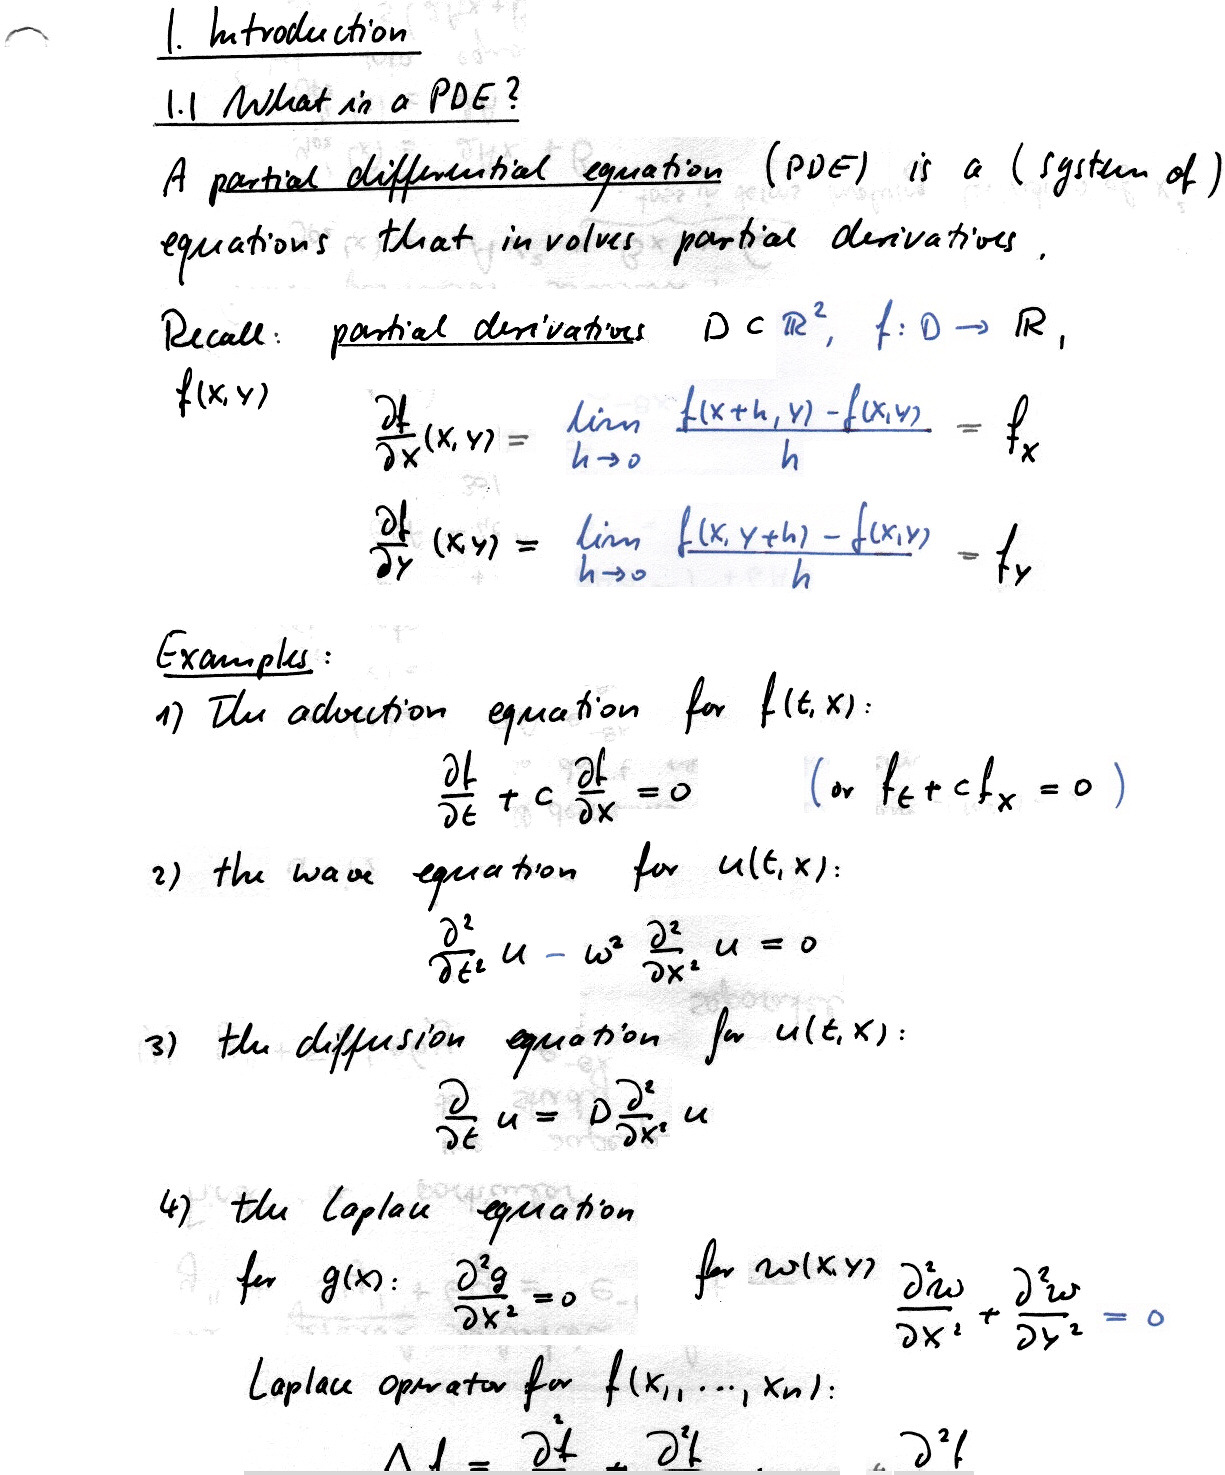 1. Introduction
1.1 What is a PDE?
A partial differential equation (PDE) is a (system of)
equations that involves partial derivatives.
Recall: partial derivatives D ⊂ ℝ², f: D → ℝ,
f(x,y)
∂f/∂x (x,y) = lim h→0 (f(x+h,y) - f(x,y))/h = f_x
∂f/∂y (x,y) = lim h→0 (f(x,y+h) - f(x,y))/h = f_y
Examples:
1) The advection equation for f(t,x):
∂f/∂t + c ∂f/∂x = 0 (or f_t + c f_x = 0)
2) the wave equation for u(t,x):
∂²/∂t² u - ω² ∂²/∂x² u = 0
3) the diffusion equation for u(t,x):
∂/∂t u = D ∂²/∂x² u
4) the Laplace equation
for g(x): ∂²g/∂x² = 0 for w(x,y) ∂²w/∂x² + ∂²w/∂y² = 0
Laplace operator for f(x₁, ..., xₙ):
Δf = ∂²f + ∂²f ∂²f